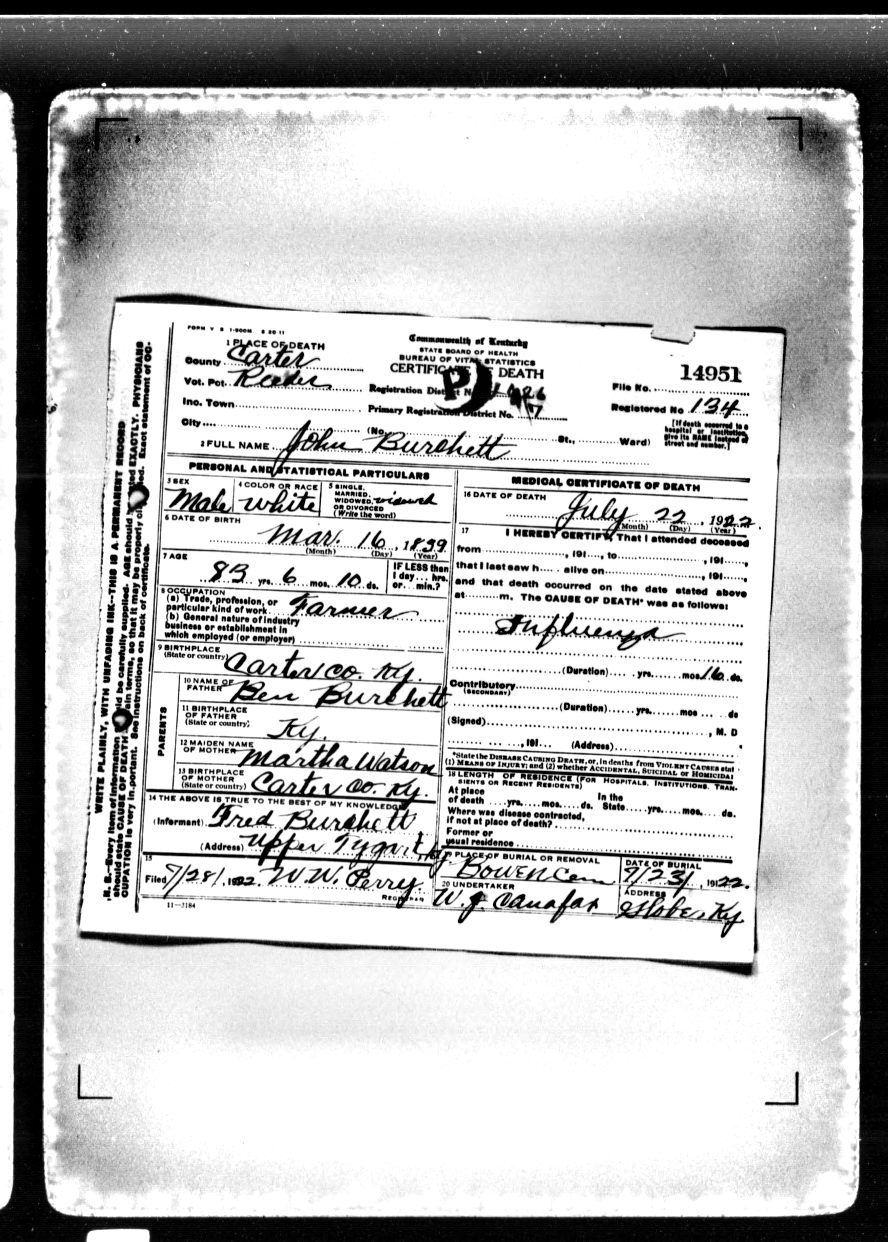 FORM V S 1-500M 6 20 11
1 PLACE OF DEATH
County Carter
Vot. Pct. Reeder
Inc. Town
City
Commonwealth of Kentucky
STATE BOARD OF HEALTH
BUREAU OF VITAL STATISTICS
CERTIFICATE OF DEATH
Registration District No.
Primary Registration District No.
(No. St., Ward)
14951
File No.
Registered No 134
[If death occurred in a
hospital or institution,
give its NAME instead of
street and number.]
2 FULL NAME John Burchett
PERSONAL AND STATISTICAL PARTICULARS
3 SEX
Male
4 COLOR OR RACE
White
5 SINGLE,
MARRIED,
WIDOWED,
OR DIVORCED
(Write the word)
widowed
6 DATE OF BIRTH
Mar. 16, 1839
(Month) (Day) (Year)
7 AGE
83 yrs. 6 mos. 10 ds.
IF LESS than
1 day... hrs.
or... min.?
8 OCCUPATION
(a) Trade, profession, or
particular kind of work Farmer
(b) General nature of industry
business or establishment in
which employed (or employer)
9 BIRTHPLACE
(State or country) Carter co. Ky.
PARENTS
10 NAME OF
FATHER Ben Burchett
11 BIRTHPLACE
OF FATHER
(State or country) Ky.
12 MAIDEN NAME
OF MOTHER Martha Watson
13 BIRTHPLACE
OF MOTHER
(State or country) Carter co. Ky.
14 THE ABOVE IS TRUE TO THE BEST OF MY KNOWLEDGE
(Informant) Fred Burchett
(Address) Upper Tygart, Ky
15
Filed 7/28/, 1922. W. W. Perry
REGISTRAR
11—3184
MEDICAL CERTIFICATE OF DEATH
16 DATE OF DEATH
July 22, 1922.
(Month) (Day) (Year)
17 I HEREBY CERTIFY, That I attended deceased
from , 191..., to , 191...,
that I last saw h... alive on , 191...,
and that death occurred on the date stated above
at m. The CAUSE OF DEATH* was as follows:
Influenza
(Duration) yrs. mos. 16 ds.
Contributory
(SECONDARY)
(Duration) yrs. mos ds
(Signed) , M. D
, 191 (Address)
*State the DISEASE CAUSING DEATH, or, in deaths from VIOLENT CAUSES stat
(1) MEANS OF INJURY; and (2) whether ACCIDENTAL, SUICIDAL or HOMICIDAL
18 LENGTH OF RESIDENCE (FOR HOSPITALS, INSTITUTIONS, TRAN-
SIENTS OR RECENT RESIDENTS)
At place In the
of death yrs. mos. ds. State yrs. mos. ds.
Where was disease contracted,
if not at place of death?
Former or
usual residence
19 PLACE OF BURIAL OR REMOVAL
Bowen Cem
DATE OF BURIAL
7/23/, 1922.
20 UNDERTAKER
W. J.
ADDRESS
Globe, Ky
WRITE PLAINLY, WITH UNFADING INK—THIS IS A PERMANENT RECORD
N. B.—Every item of information should be carefully supplied. AGE should be stated EXACTLY. PHYSICIANS
should state CAUSE OF DEATH in plain terms, so that it may be properly classified. Exact statement of OC-
CUPATION is very important. See instructions on back of certificate.